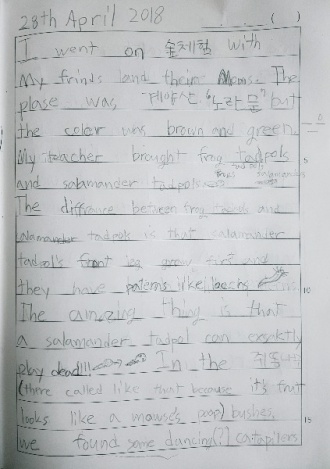 28th April 2018 ( )
I went on 숲체험 with
My frinds and their Moms. The
plase was, 계양산 "노란 문" but
the color was brown and green.
My teacher brought frog tadpols 5
and salamander tadpols.
frogs salamanders
The diffrance between frog tadpols and
salamander tadpols is that salamander
tadpol's front leg grow first and
they have paterns like leechs 10
The amazing thing is that
a salamander tadpol can exactly
play dead!!! In the 쥐똥나무
(there called like that because it's fruit
looks like a mouse's poop) bushes, 15
we found some dancing(?) catapilers